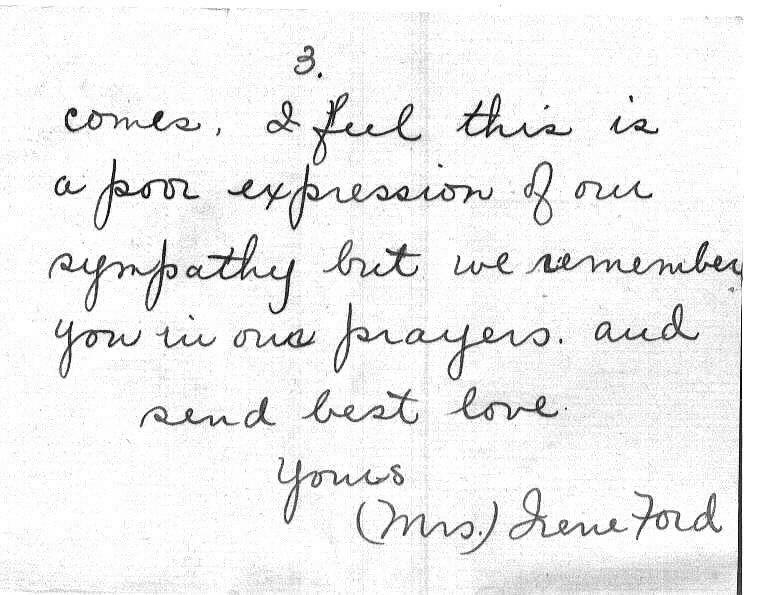 3.
comes, I feel this is
a poor expression of our
sympathy but we remember
you in our prayers. and
send best love.
Yours
(Mrs.) Irene Ford